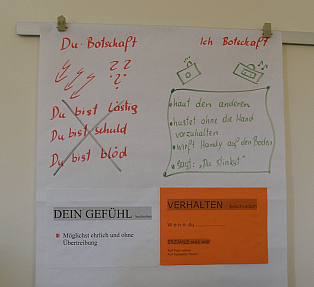 Du-Botschaft
Ich Botschaft
? ?
?
Du bist Lästig
Du bist schuld
Du bist blöd
haut den anderen
hustet ohne die Hand
vorzuhalten
wirft Handy auf den Boden
sagt: „Du stinkst"
DEIN GEFÜHL
Möglichst ehrlich und ohne
Übertreibung
VERHALTEN
Wenn du